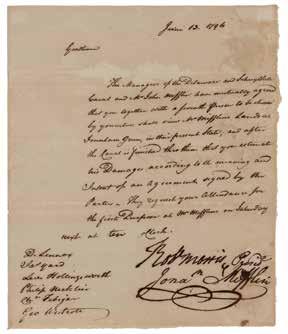 June 13. 1796
Gentlemen
The Managers of the Delaware and Schuylkill
Canal and Mr John Mifflin have mutually agreed
that you together with a fourth Person to be chosen
by yourselves shall view Mr Mifflins Land at
in their present State, and after
the Canal is finished thro them that you estimate
his Damages according to the meaning and
Intent of an Agreement signed by the
Parties. They request your Attendance for
the first Purpose at Mr Mifflins on Saturday
next at ten Clock.
D. Lennox
Levi Hollingsworth
Philip Nicklin
Geo
Robt Morris Presidt
Jona Mifflin